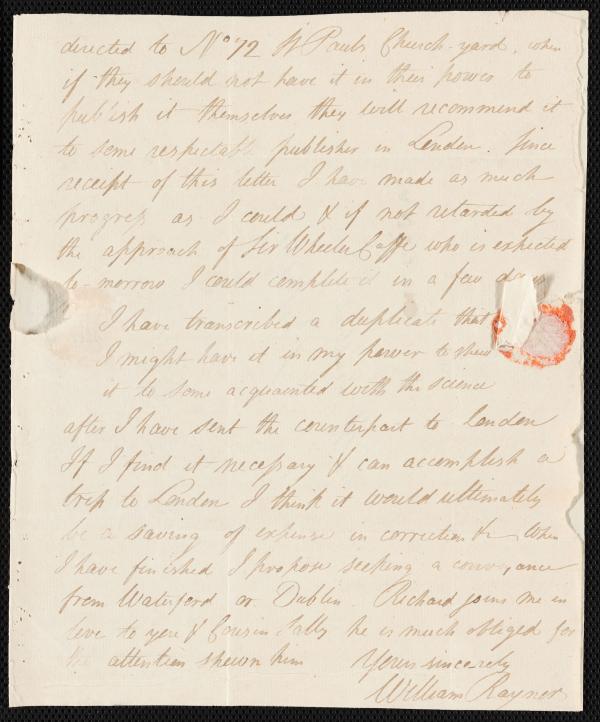 directed to No 72 St Pauls Church-yard, when
if they should not have it in their power to
publish it themselves they will recommend it
to some respectable publisher in London. Since
receipt of this letter I have made as much
progress as I could & if not retarded by
the approach of Sir Wheeler Cuffe who is expected
to-morrow I could complete it in a few days
I have transcribed a duplicate that
I might have it in my power to shew
it to some acquainted with the science
after I have sent the counterpart to London
If I find it necessary & can accomplish a
trip to London I think it would ultimately
be a saving of expense in correction &c When
I have finished I propose seeking a conveyance
from Waterford or Dublin. Richard joins me in
love to you & Cousin Sally he is much obliged for
the attention shewn him Yours sincerely
William Rayner